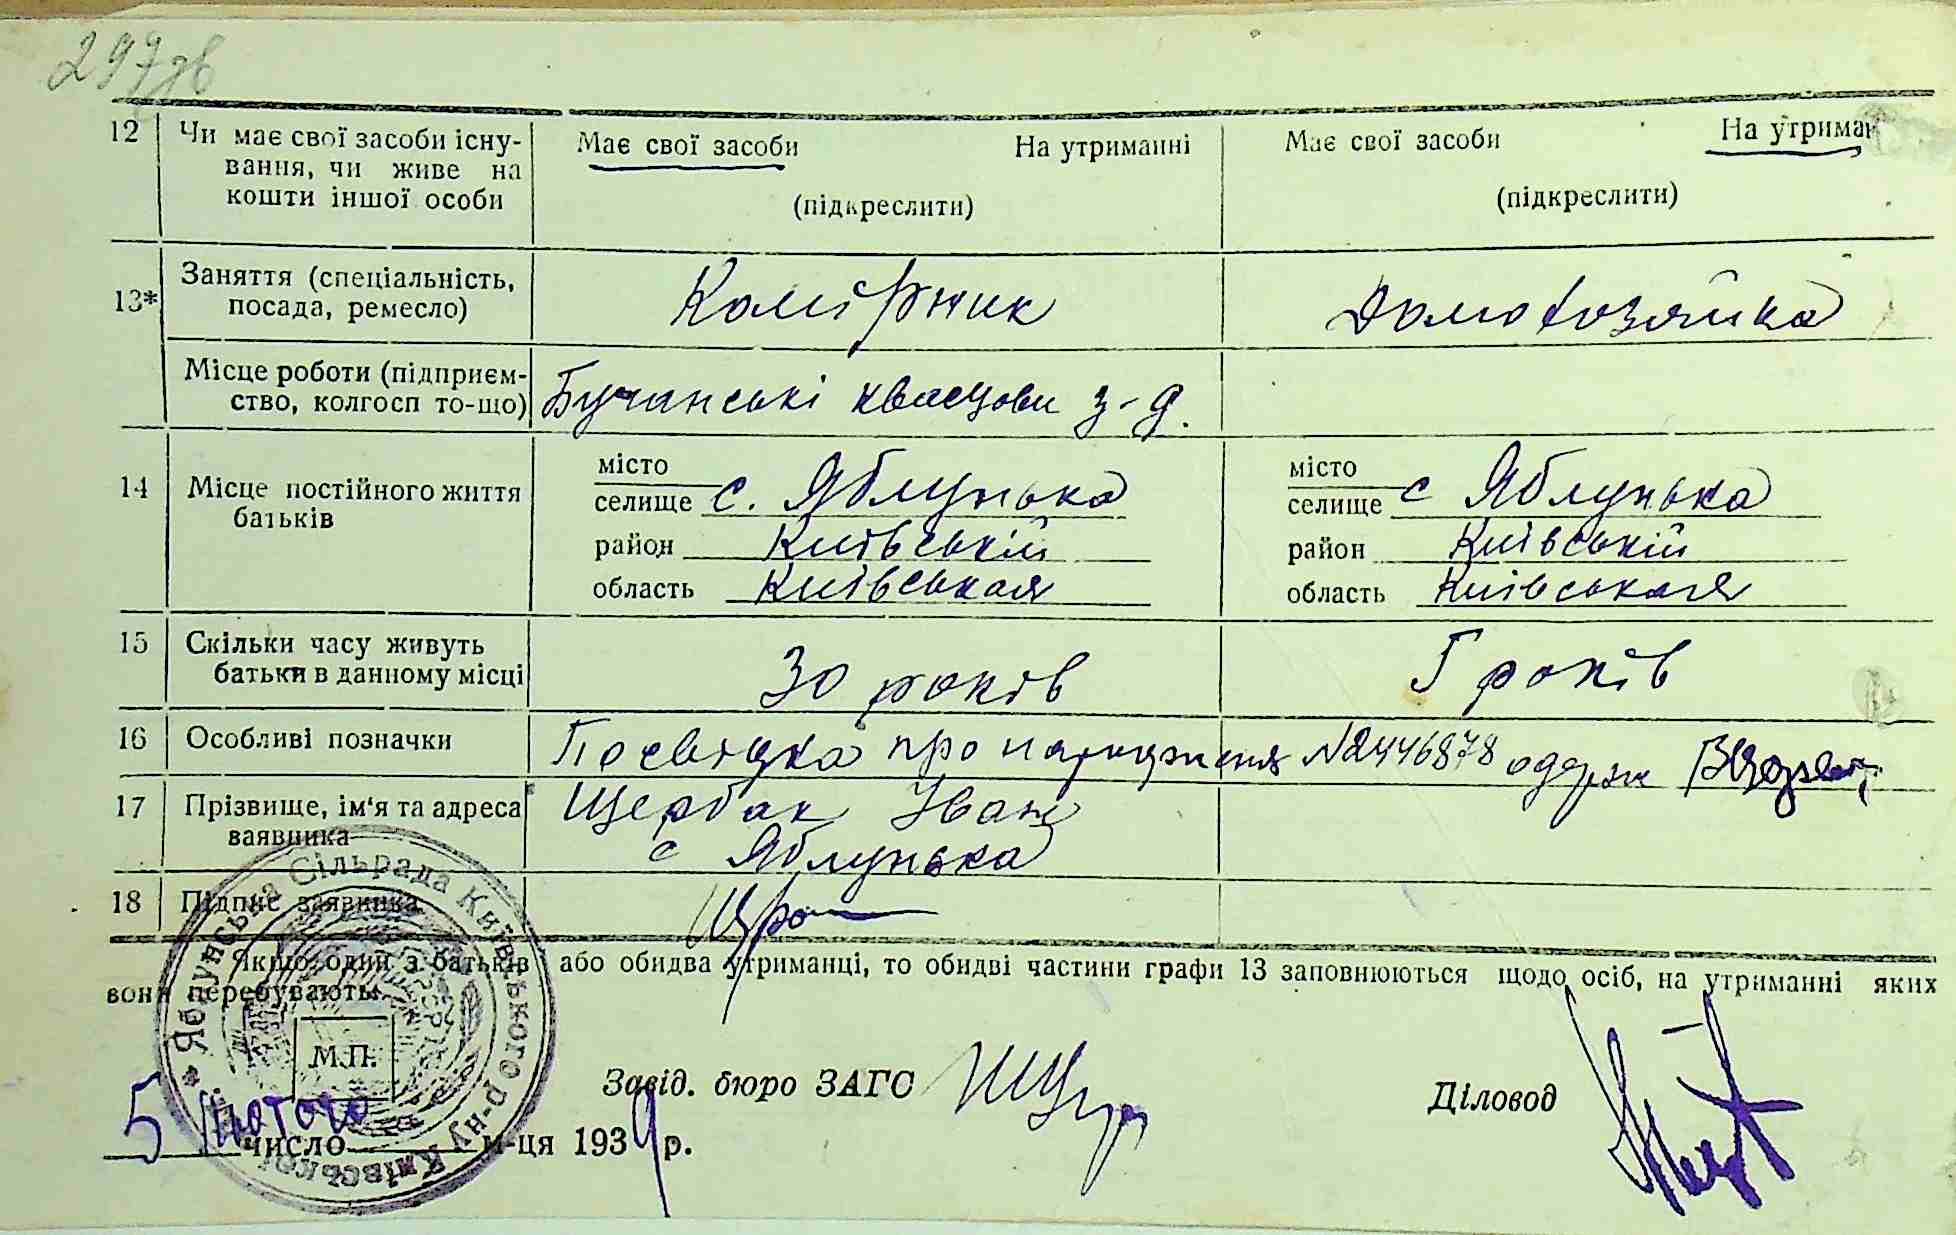 297зв
12 Чи має свої засоби існу- Має свої засоби На утриманні Має свої засоби На утриман
вання, чи живе на
кошти іншої особи (підкреслити) (підкреслити)
13* Заняття (спеціальність, Комірник Домохозяйка
посада, ремесло)
Місце роботи (підприєм- Бучанські квасцови з-д.
ство, колгосп то-що)
14 Місце постійного життя місто місто
батьків селище с. Яблунька селище с Яблунька
район Київській район Київській
область Київськая область Київськая
15 Скільки часу живуть 30 років 5 років
батьки в данному місці
16 Особливі позначки Посвідка про народження №2446878 одерж
17 Прізвище, ім'я та адреса Щербак Іван
заявника с Яблунька
18 Підпис заявника
Якщо один з батьків або обидва утриманці, то обидві частини графи 13 заповнюються щодо осіб, на утриманні яких
вони перебувають.
Яблунська Сільрада Київського р-ну Київської
М.П.
Завід. бюро ЗАГС Діловод
5 лютого число м-ця 1939 р.